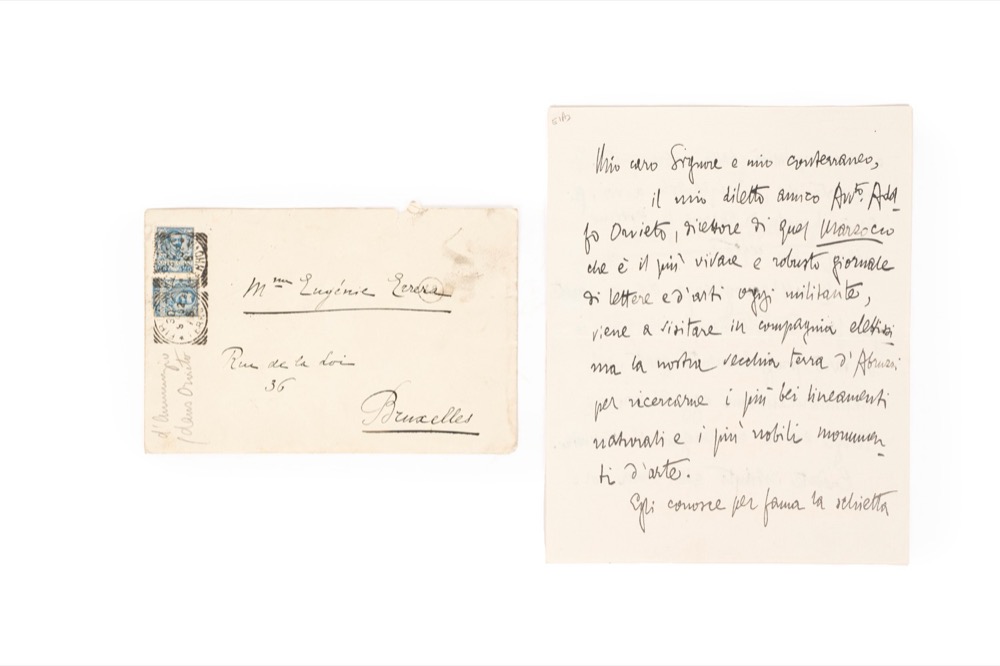 Mme Eugénie Errera
Rue de la Loi
36
Bruxelles
d'Annunzio
dans Orvieto
Mio caro Signore e mio conterraneo,
il mio diletto amico Avv.to Adol-
fo Orvieto, direttore di quel Marzocco
che è il più vivace e robusto giornale
di lettere e d'arti oggi militante,
viene a visitare in compagnia elettissi
ma la nostra vecchia terra d'Abruzzi
per ricercarne i più bei lineamenti
naturali e i più nobili monumen-
ti d'arte.
Egli conosce per fama la schietta